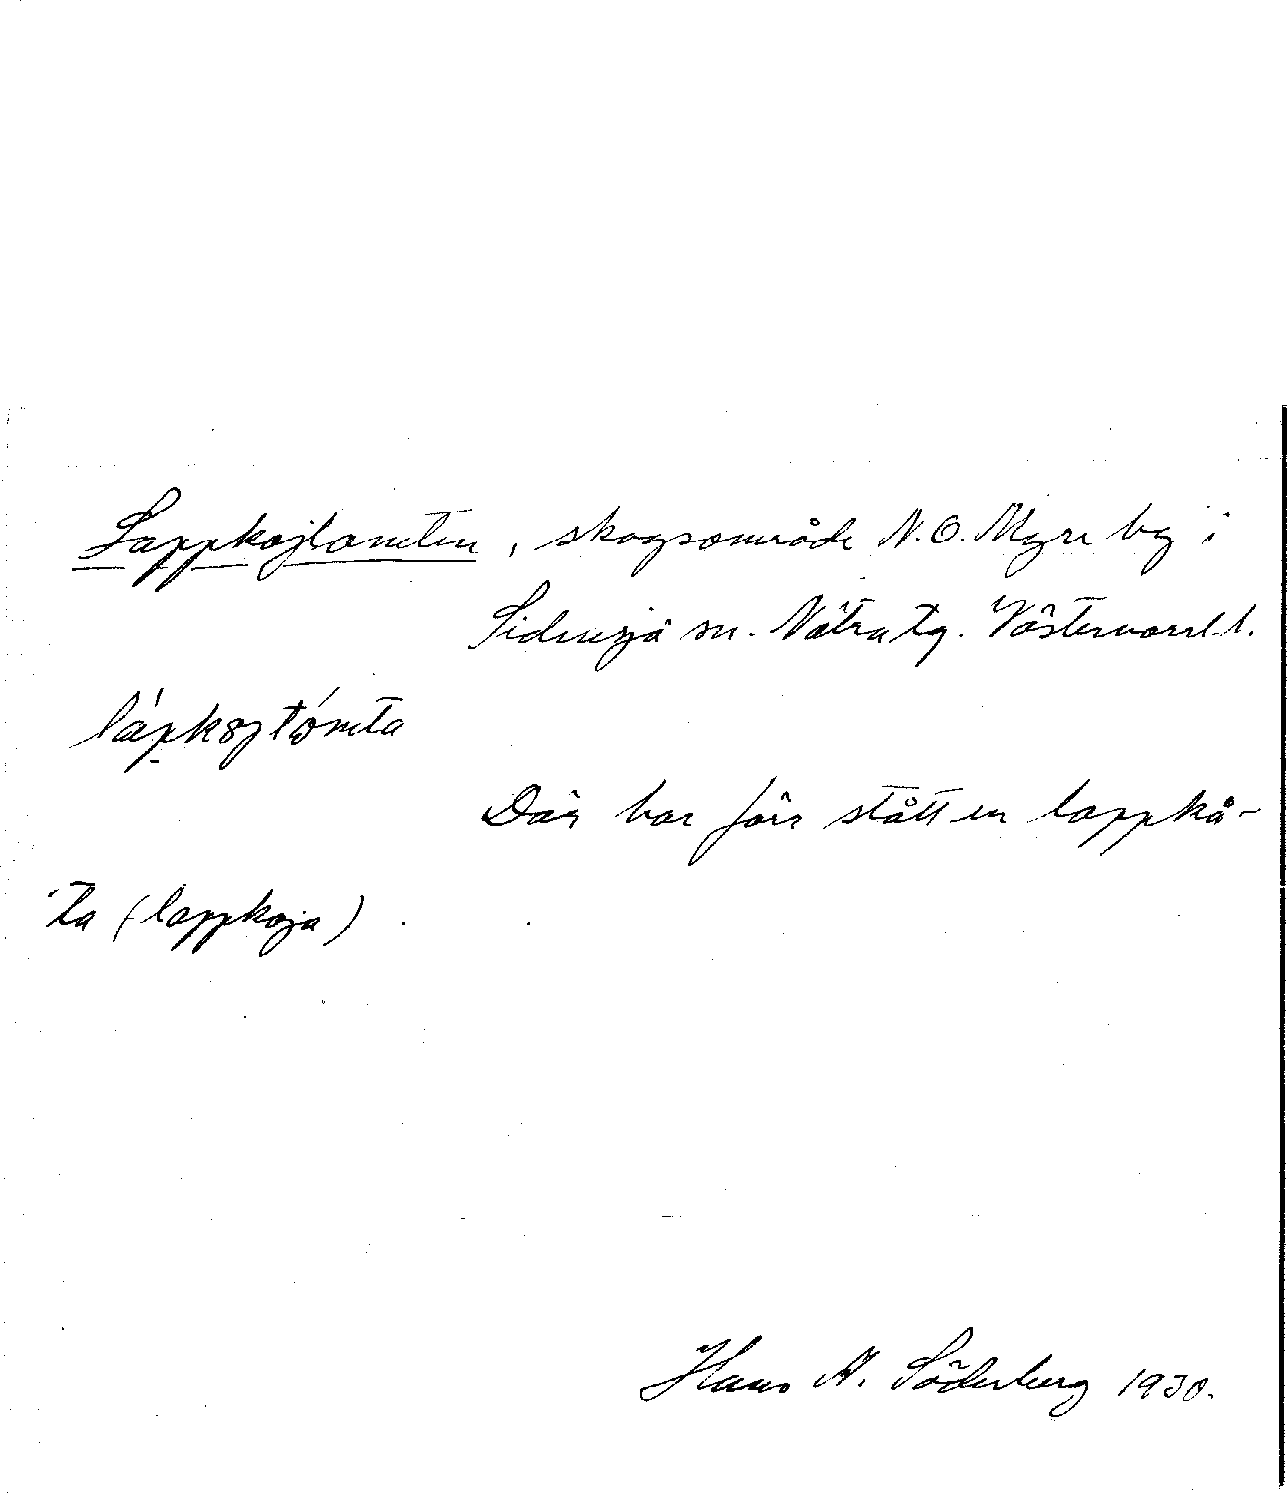 Lappkojtomten, skogsområde N.O. Myre by i
Sidensjö sn. Nätra tg. Västernorrl. l.
Där har förr stått en lappkå-
ta (lappkoja).
Hans A. Söderberg 1930.